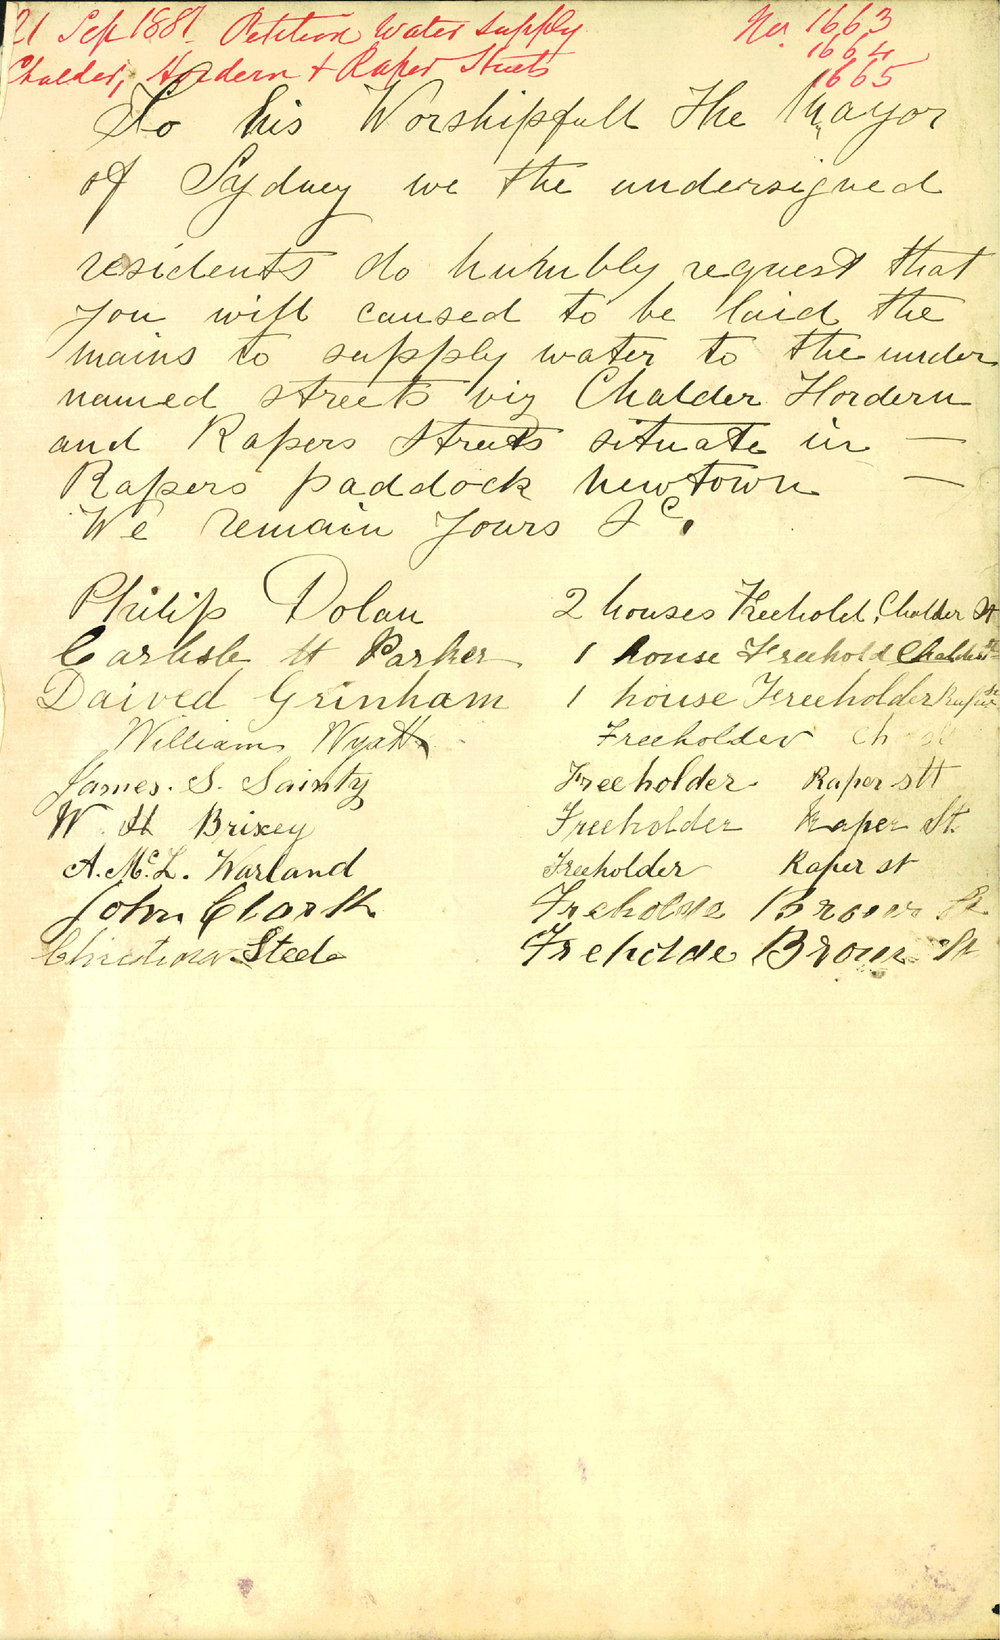 21 Sep 1881 Petition Water Supply No. 1663
1664
Chalder, Hordern & Raper Streets 1665
To his Worshipfull The Mayor
of Sydney we the undersigned
residents do humbly request that
you will caused to be laid the
mains to supply water to the under
named streets viz Chalder Hordern
and Rapers Streets situate in —
Rapers paddock newtown —
We remain yours &c.
Philip Dolan 2 houses Freehold, Chalder St
Carlisle H Parker 1 house Freehold Chalder St
Daived Grinham 1 house Freeholder
William Wyatt Freeholder
James. S. Sainty Freeholder Raper stt
W. H Brixey Freeholder Raper St.
A. McL. Warland Freeholder Raper st
John Clark Freholde Broun St
Steele Freholde Broun St